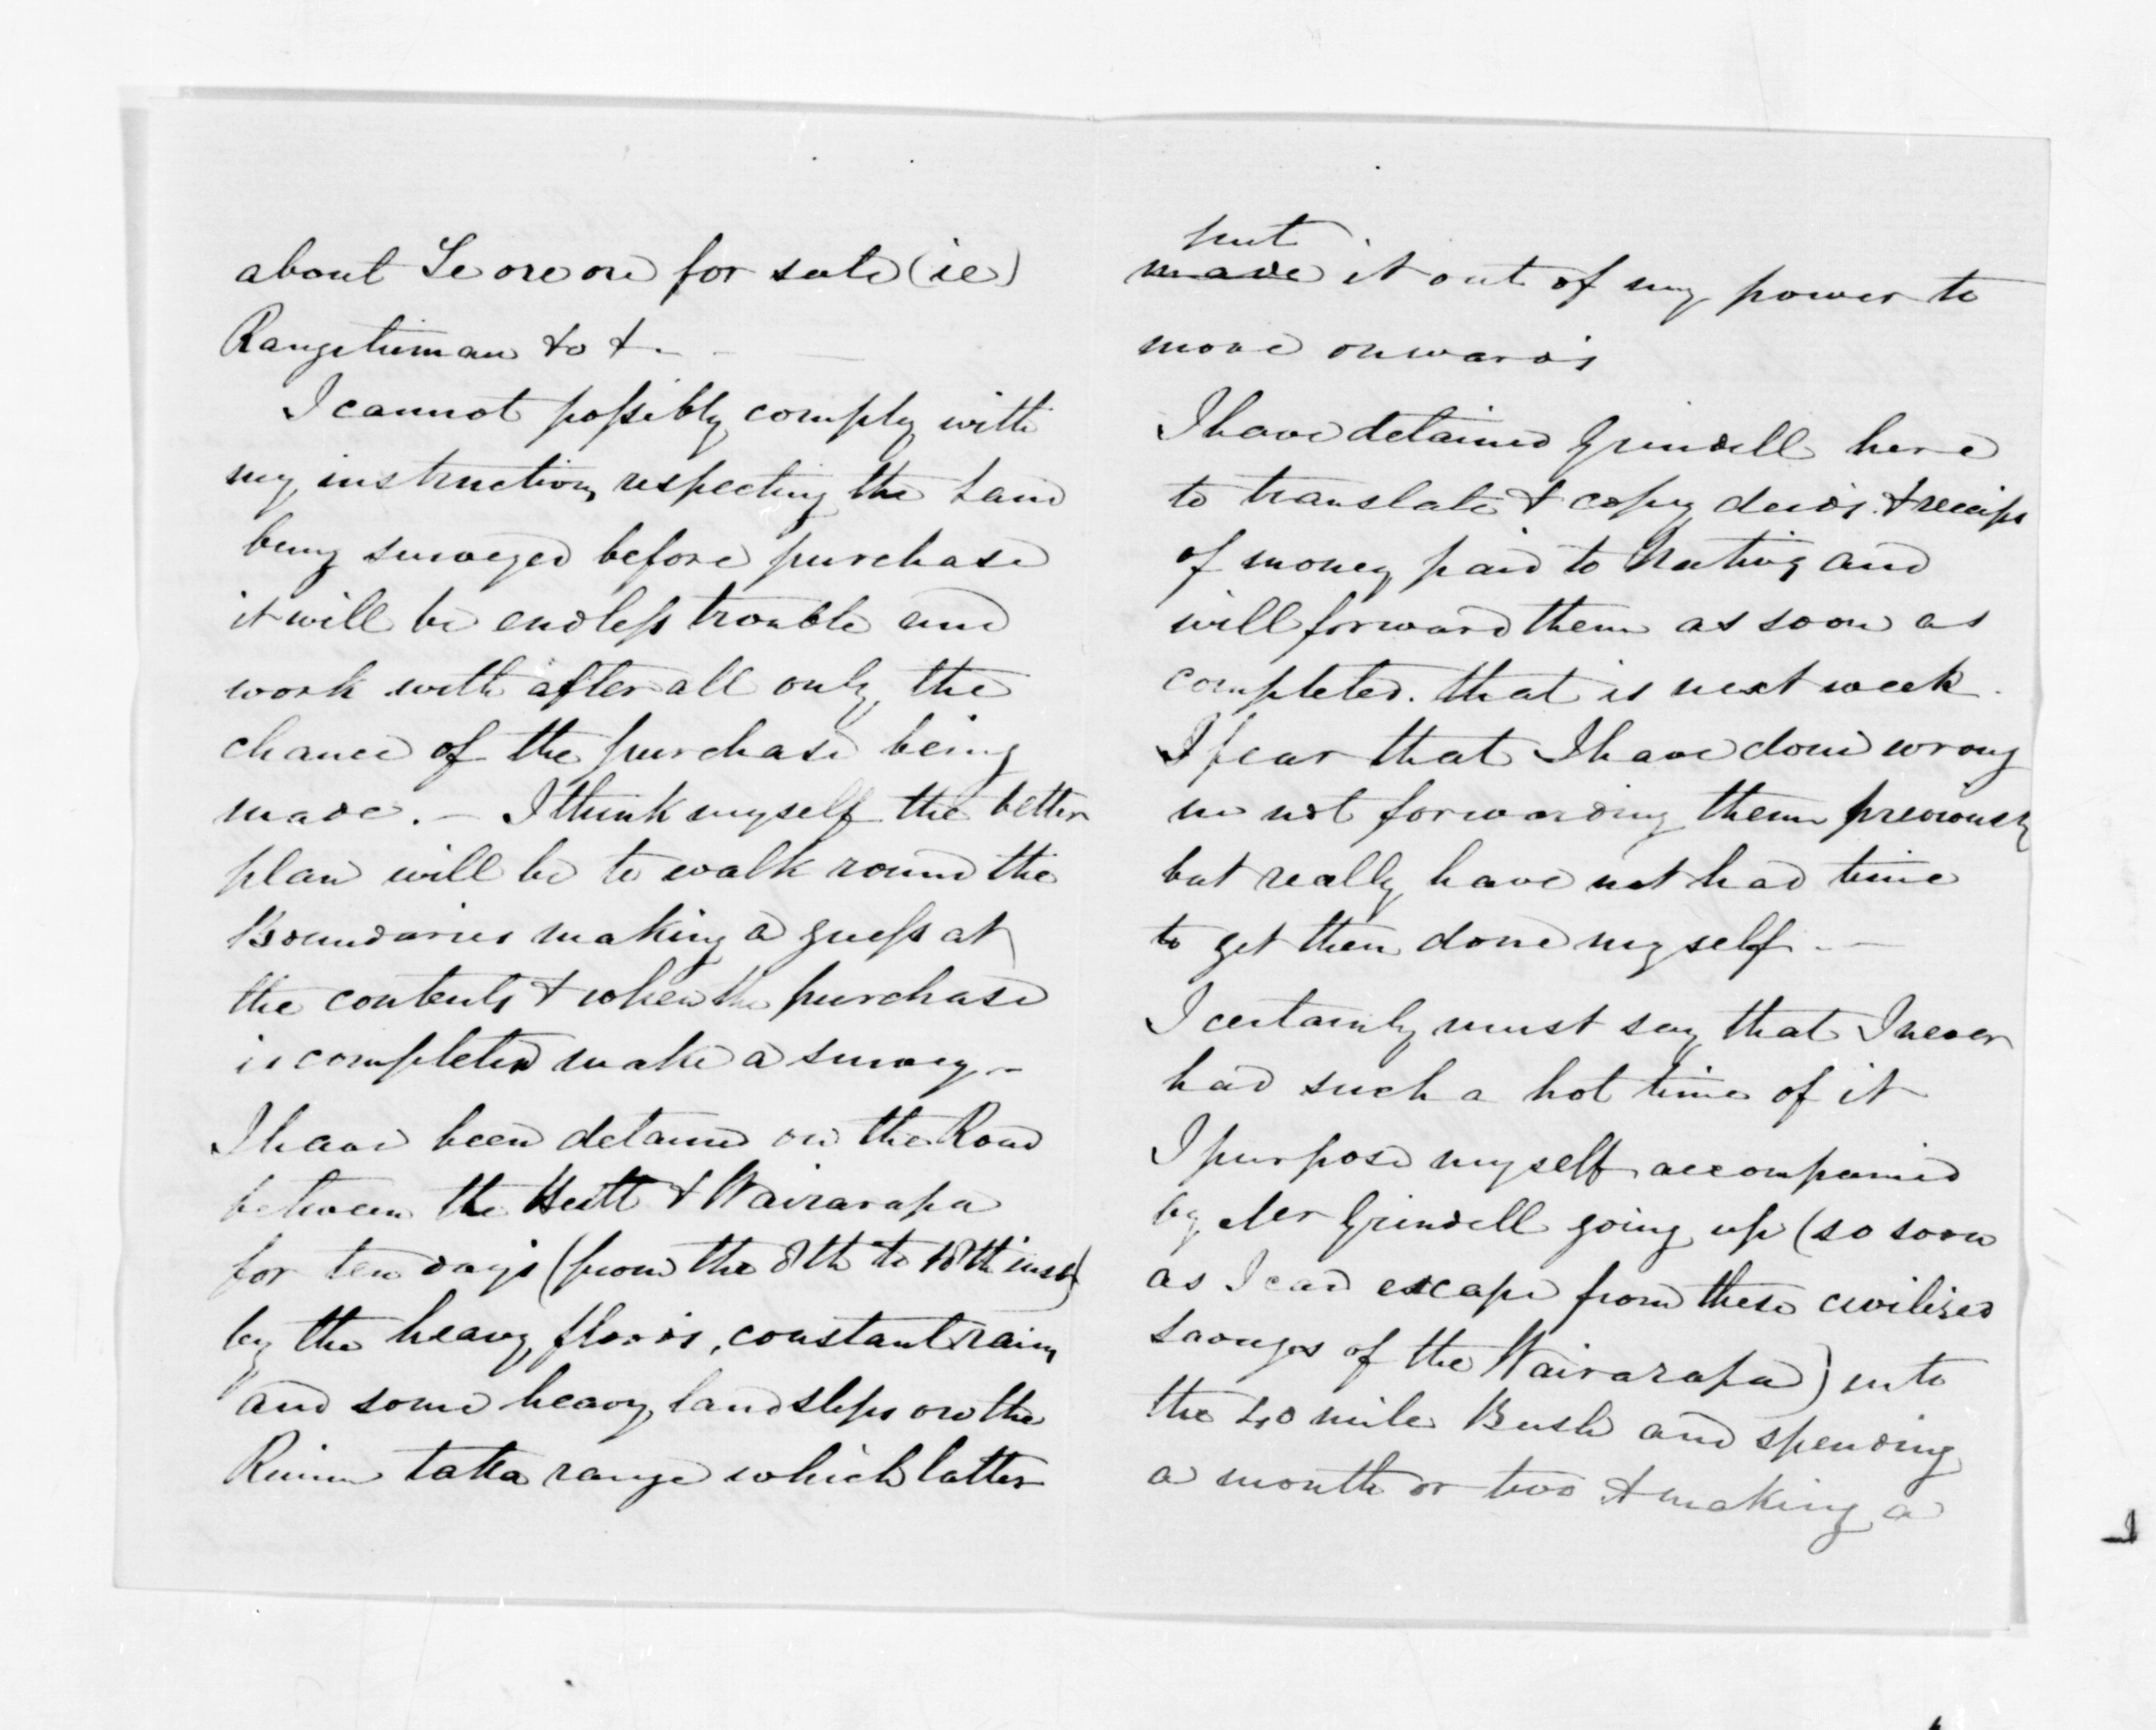 about Te ore ore for sale (ie)
Rangitumau &c &.
I cannot possibly comply with
my instructions respecting the Land
being surveyed before purchase
it will be endless trouble and
work with after all only the
chance of the purchase being
made. — I think myself the better
plan will be to walk round the
Boundaries making a guess at
the contents & when the purchase
is completed make a survey. —
I have been detained on the Road
between the Hutt & Wairarapa
for ten days (from the 8th to 18th inst)
by the heavy floods, constant rain
and some heavy landslips on the
Rimutaka range which latter
put
made it out of my power to
move onwards
I have detained Grindell here
to translate & copy deeds & receipts
of money paid to Natives and
will forward them as soon as
completed. that is next week.
I fear that I have done wrong
in not forwarding them previously
but really have not had time
to get them done myself. —
I certainly must say that I never
had such a hot time of it
I purpose myself accompanied
by Mr Grindell going up (so soon
as I can escape from these civilized
savages of the Wairarapa) into
the 40 mile Bush and spending
a month or two & making a